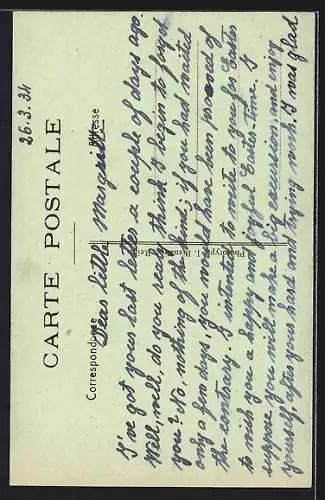 26.3.34
CARTE POSTALE
Correspondance
Adresse
Dear little Marguerite
I've got your last letter a couple of days ago.
Well, well, do you really think I begin to forget
you? No, nothing of the kind; if you had waited
only a few days, you would have been proved of
the contrary. I intented to write to you for Easter
to wish you a happy and joyful Easter-time. I
suppose you will make a big excursion and enjoy
yourself, after your hard and trying work. I was glad
Phototypie J.